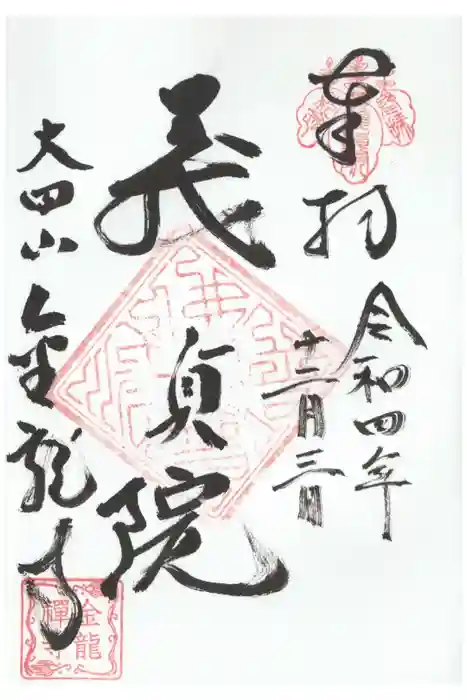 奉拝
令和四年
十二月三日
義貞院
大田山金龍寺
金龍
禅寺